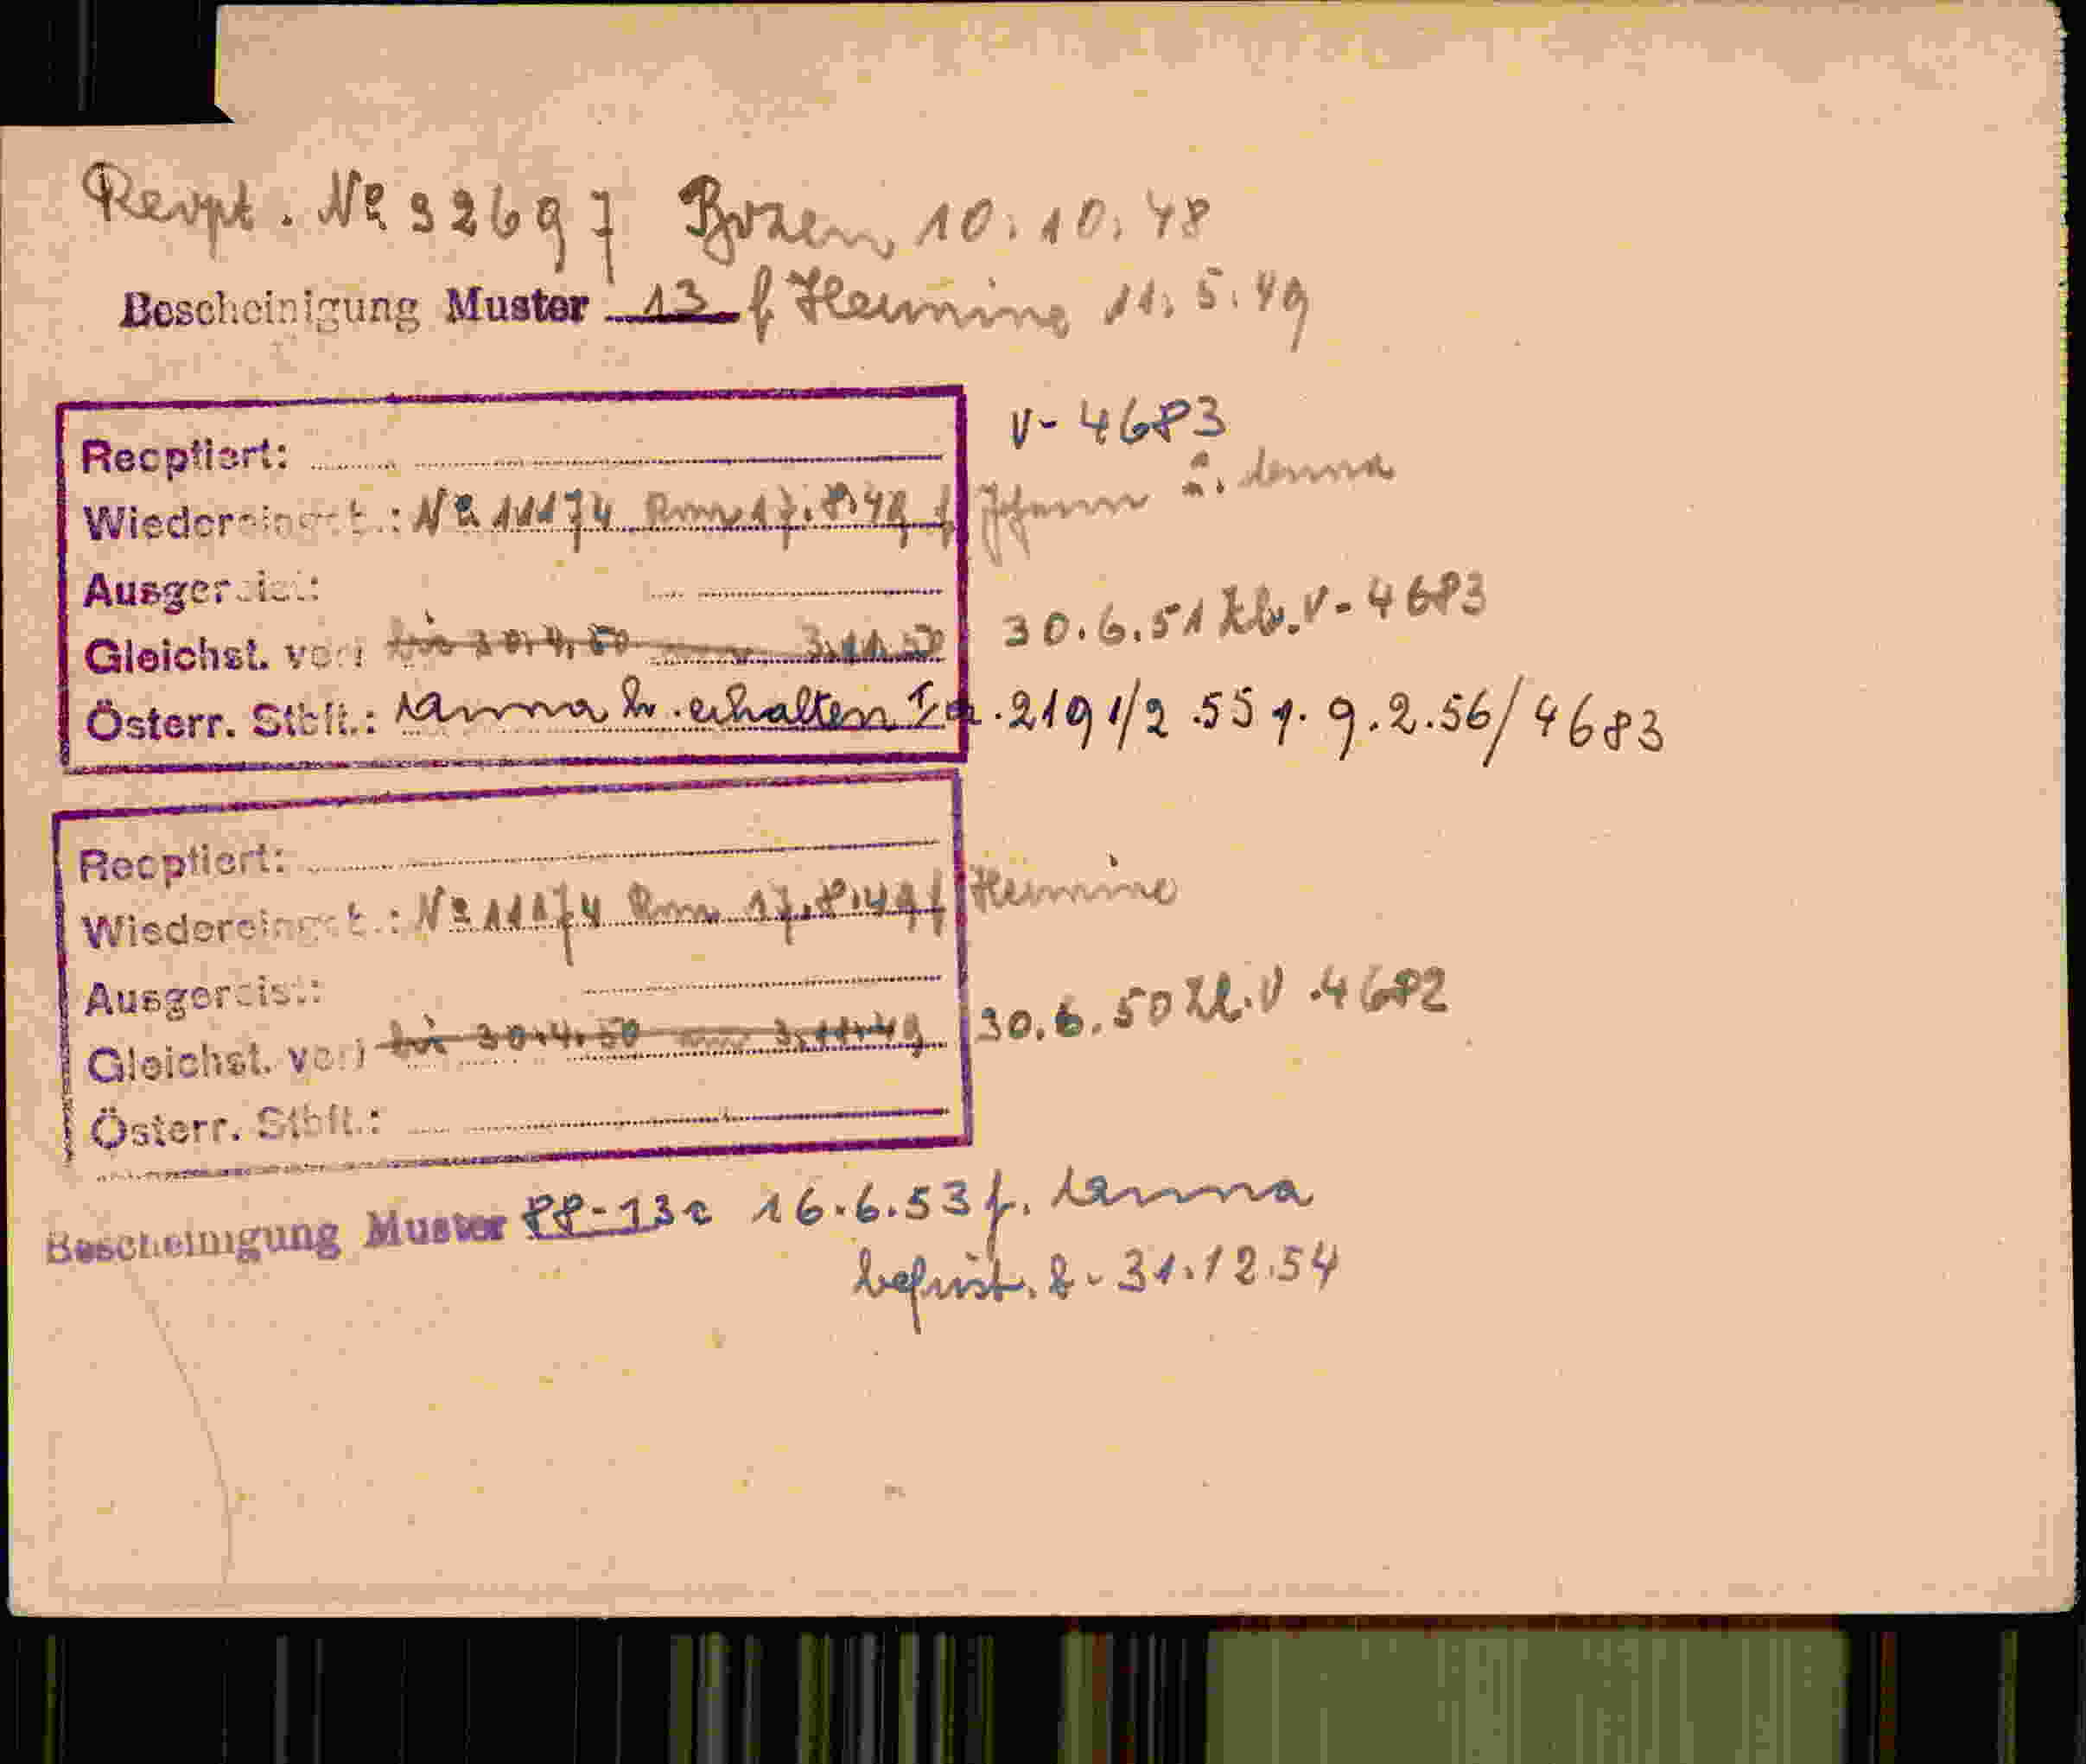 Reopt. № 92697 Bozen 10.10.48
Bescheinigung Muster 13 f Hermine 11.5.49
V-4683
Reoptiert:
Wiedereingeb.: № 11174 Rom 17.8.49 f Johann u. Anna
Ausgereist:
Gleichst. verl bis 30.4.50 3.11.50 30.6.51 Zl. V-4683
Österr. Stbft.: Anna h. erhalten Ia.2191/2.55 v. 9.2.56/4683
Reoptiert:
Wiedereingeb.: № 11174 Rom 17.8.49 f Hermine
Ausgereist:
Gleichst. verl bis 30.4.50 3.11.49 30.6.50 Zl. V.4682
Österr. Stbft.:
Bescheinigung Muster 88-13c 16.6.53 f. Anna
befrist. b. 31.12.54